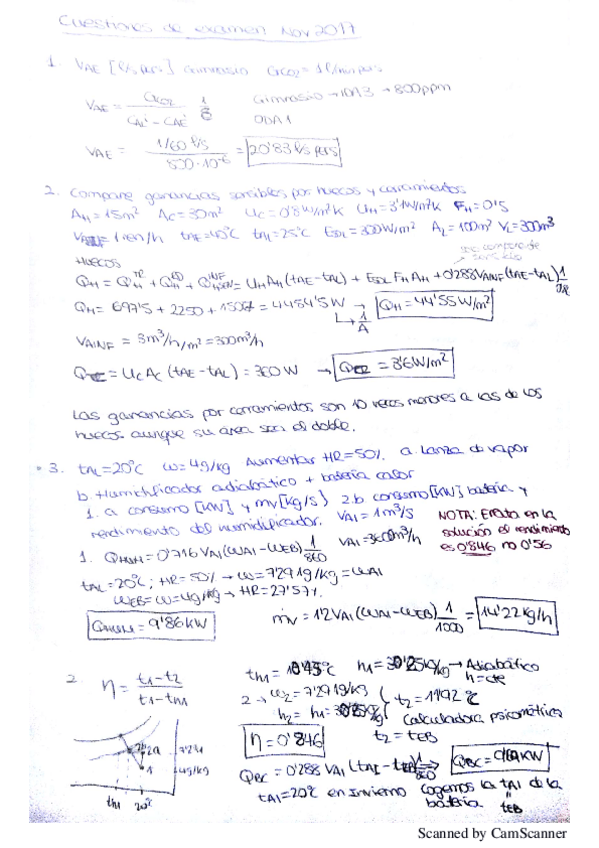 Cuestiones de examen Nov 2017
1. VAE [l/s pers] Gimnasio GCO2 = 1 l/min pers
VAE = GCO2 / (CAL - CAE) 1/ε Gimnasio → IDA3 → 800ppm
ODA1
VAE = (1/60 l/s) / (800·10⁻⁶) = 20'83 l/s pers
2. Compare ganancias sensibles por huecos y cerramientos
AH = 15m² AC = 30m² UC = 0'8W/m²K UH = 3'1W/m²K FH = 0'5
1 ren/h tAE = 40°C tAL = 25°C ESOL = 300W/m² AL = 100m² VL = 300m³
Huecos
se compara de
QH = + + = UH AH (tAE - tAL) + ESOL FH AH + 0'288 VAINF (tAE - tAL)
QH = 697'5 + 2250 + = 4454'5W → QH = 44'55 W/m²
1/A
VAINF = 3m³/h/m² = 300m³/h
= UC AC (tAE - tAL) = 360W → = 3'6W/m²
Las ganancias por cerramientos son 10 veces menores a las de los
huecos aunque su área sea el doble.
3. tAL = 20°C w = 4g/kg Aumentar HR = 50% a. Lanza de vapor
b. Humidificador adiabático + batería calor
1. a consumo [kW] y mv [kg/s] 2.b. consumo [kW] batería y
rendimiento del humidificador. VAI = 1m³/s
NOTA: Errata en la
solución el rendimiento
es 0'846 no 0'56
1. QHUM = 0'716 VAI (WAI - WEB) 1/860 VAI = 3600m³/h
tAL = 20°C; HR = 50% → w = 7'291g/kg = WAI
WEB = w = 4g/kg → HR = 27'57%
QHUM = 9'86kW mv = 1'2 VAI (WAI - WEB) 1/1000 = 14'22kg/h
2. η = (t1 - t2) / (t1 - th1) th1 = h1 = → Adiabático
h = cte
2 → w2 = 7'291g/kg t2 = 11'92°C
h2 = h1 = Calculadora psicométrica
t2 = tEB
η = 0'846
QBC = 0'288 VAI (tAI - tEB) 1/860 → QBC =
tAI = 20°C en invierno cogemos la tAI de la
batería
tEB
2 2a 7'29
1 4g/kg
th1 20°C
Scanned by CamScanner